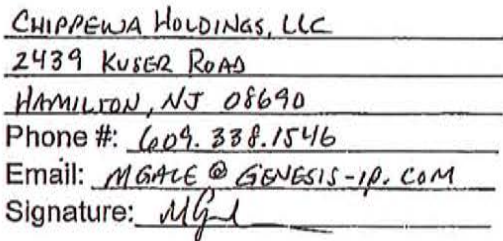 CHIPPEWA HOLDINGS, LLC
2439 KUSER ROAD
HAMILTON, NJ 08690
Phone #: 609.338.1546
Email: MGALE @ GENESIS-IP.COM
Signature: